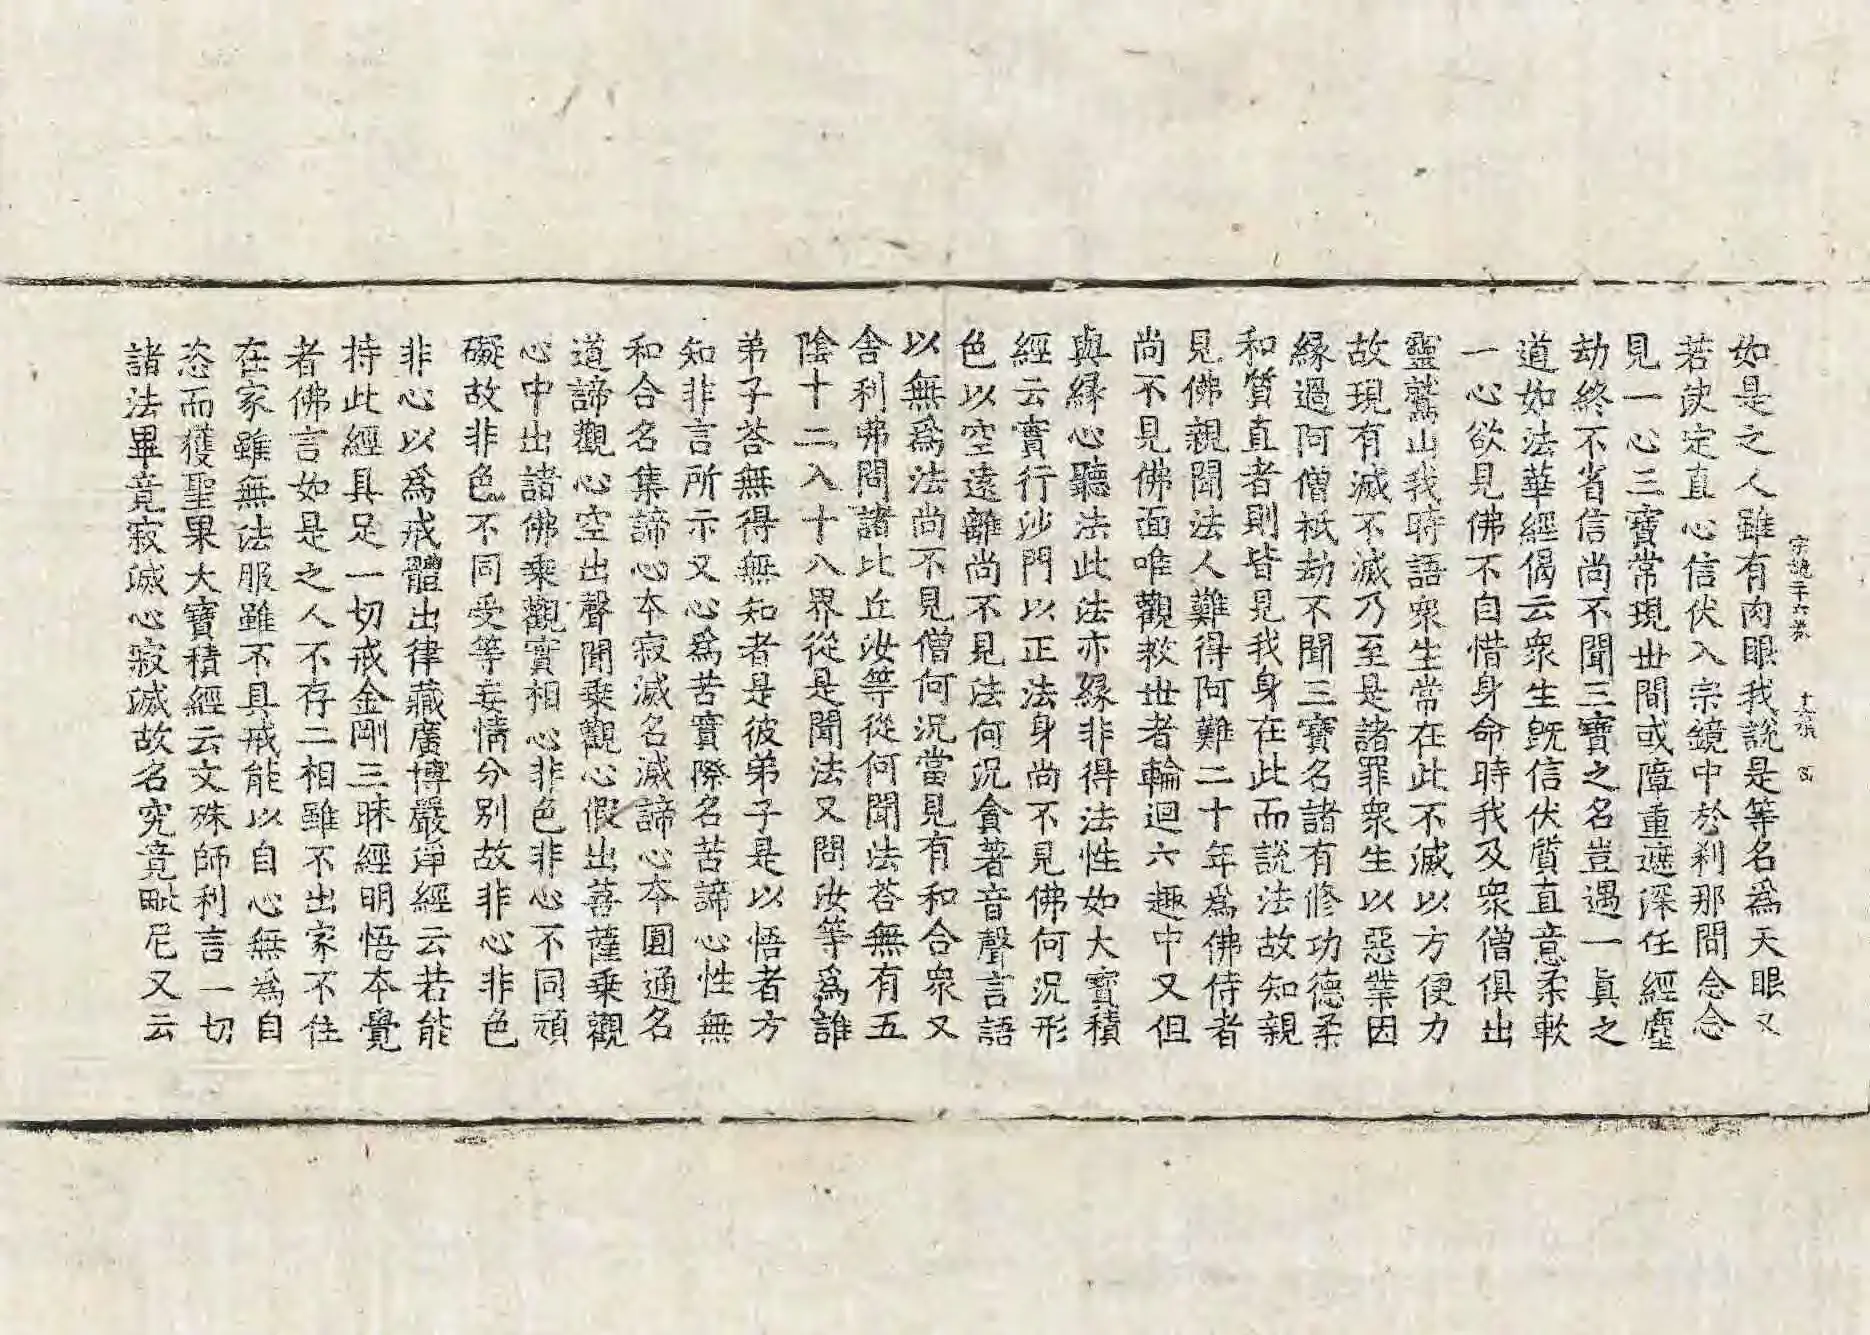 宗鏡二十六卷 十五張 我
如是之人雖有肉眼我說是等名爲天眼又
若使定直心信伏入宗鏡中於刹那間念念
見一心三寶常現世間或障重遮深任經塵
劫終不省信尚不聞三寶之名豈遇一眞之
道如法華經偈云衆生旣信伏質直意柔軟
一心欲見佛不自惜身命時我及衆僧俱出
靈鷲山我時語衆生常在此不滅以方便力
故現有滅不滅乃至是諸罪衆生以惡業因
緣過阿僧祇劫不聞三寶名諸有修功德柔
和質直者則皆見我身在此而說法故知親
見佛親聞法人難得阿難二十年爲佛侍者
尚不見佛面唯觀救世者輪迴六趣中又但
與緣心聽法此法亦緣非得法性如大寶積
經云實行沙門以正法身尚不見佛何況形
色以空遠離尚不見法何況貪著音聲言語
以無爲法尚不見僧何況當見有和合衆又
舍利弗問諸比丘汝等從何聞法荅無有五
陰十二入十八界從是聞法又問汝等爲誰
弟子荅無得無知者是彼弟子是以悟者方
知非言所示又心爲苦實際名苦諦心性無
和合名集諦心本寂滅名滅諦心本圓通名
道諦觀心空出聲聞乘觀心假出菩薩乘觀
心中出諸佛乘觀實相心非色非心不同頑
礙故非色不同受等妄情分別故非心非色
非心以爲戒體出律藏廣博嚴淨經云若能
持此經具足一切戒金剛三昧經明悟本覺
者佛言如是之人不存二相雖不出家不住
在家雖無法服雖不具戒能以自心無爲自
恣而獲聖果大寶積經云文殊師利言一切
諸法畢竟寂滅心寂滅故名究竟毗尼又云